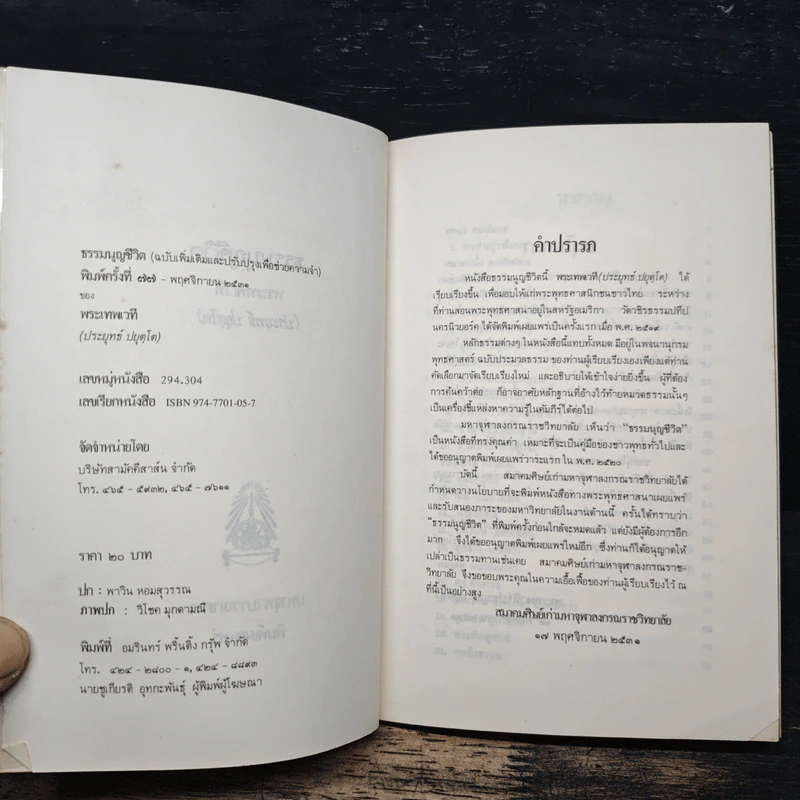 ธรรมนูญชีวิต (ฉบับเพิ่มเติมและปรับปรุงเพื่อช่วยความจำ)
พิมพ์ครั้งที่ ๗๗ - พฤศจิกายน ๒๕๓๑
ของ
พระเทพเวที
(ประยุทธ์ ปยุตฺโต)
เลขหมู่หนังสือ 294.304
เลขเรียกหนังสือ ISBN 974-7701-05-7
จัดจำหน่ายโดย
บริษัทสามัคคีสาส์น จำกัด
โทร. ๔๖๕ - ๕๙๓๒, ๔๖๕ - ๗๖๑๑
ราคา ๒๐ บาท
ปก : พาวิน หอมสุวรรณ
ภาพปก : วิโชค มุกดามณี
พิมพ์ที่ อมรินทร์ พริ้นติ้ง กรุ๊พ จำกัด
โทร. ๔๒๔ - ๒๘๐๐ - ๑, ๔๒๔ - ๘๘๙๓
นายชูเกียรติ อุทกะพันธุ์ ผู้พิมพ์ผู้โฆษณา
คำปรารภ
หนังสือธรรมนูญชีวิตนี้ พระเทพเวที (ประยุทธ์ ปยุตฺโต) ได้
เรียบเรียงขึ้น เพื่อมอบให้แก่พระพุทธศาสนิกชนชาวไทย ระหว่าง
ที่ท่านสอนพระพุทธศาสนาอยู่ในสหรัฐอเมริกา วัดวชิรธรรมปทีป
นครนิวยอร์ค ได้จัดพิมพ์เผยแพร่เป็นครั้งแรก เมื่อ พ.ศ. ๒๕๑๙
หลักธรรมต่างๆ ในหนังสือนี้แทบทั้งหมด มีอยู่ในพจนานุกรม
พุทธศาสตร์ ฉบับประมวลธรรม ของท่านผู้เรียบเรียงเองเพียงแต่ท่าน
คัดเลือกมาจัดเรียบเรียงใหม่ และอธิบายให้เข้าใจง่ายยิ่งขึ้น ผู้ที่ต้อง
การค้นคว้าต่อ ก็อาจอาศัยหลักฐานที่อ้างไว้ท้ายหมวดธรรมนั้นๆ
เป็นเครื่องชี้แหล่งหาความรู้ในคัมภีร์ได้ต่อไป
มหาจุฬาลงกรณราชวิทยาลัย เห็นว่า "ธรรมนูญชีวิต"
เป็นหนังสือที่ทรงคุณค่า เหมาะที่จะเป็นคู่มือของชาวพุทธทั่วไปและ
ได้ขออนุญาตพิมพ์เผยแพร่วาระแรก ใน พ.ศ. ๒๕๒๐
บัดนี้ สมาคมศิษย์เก่ามหาจุฬาลงกรณราชวิทยาลัยได้
กำหนดวางนโยบายที่จะพิมพ์หนังสือทางพระพุทธศาสนาเผยแพร่
และรับสนองภาระของมหาวิทยาลัยในงานด้านนี้ ครั้นได้ทราบว่า
"ธรรมนูญชีวิต" ที่พิมพ์ครั้งก่อนใกล้จะหมดแล้ว แต่ยังมีผู้ต้องการอีก
มาก จึงได้ขออนุญาตพิมพ์เผยแพร่ใหม่อีก ซึ่งท่านก็ได้อนุญาตให้
เปล่าเป็นธรรมทานเช่นเคย สมาคมศิษย์เก่ามหาจุฬาลงกรณราช-
วิทยาลัย จึงขอขอบพระคุณในความเอื้อเฟื้อของท่านผู้เรียบเรียงไว้ ณ
ที่นี้เป็นอย่างสูง
สมาคมศิษย์เก่ามหาจุฬาลงกรณราชวิทยาลัย
๑๗ พฤศจิกายน ๒๕๓๑